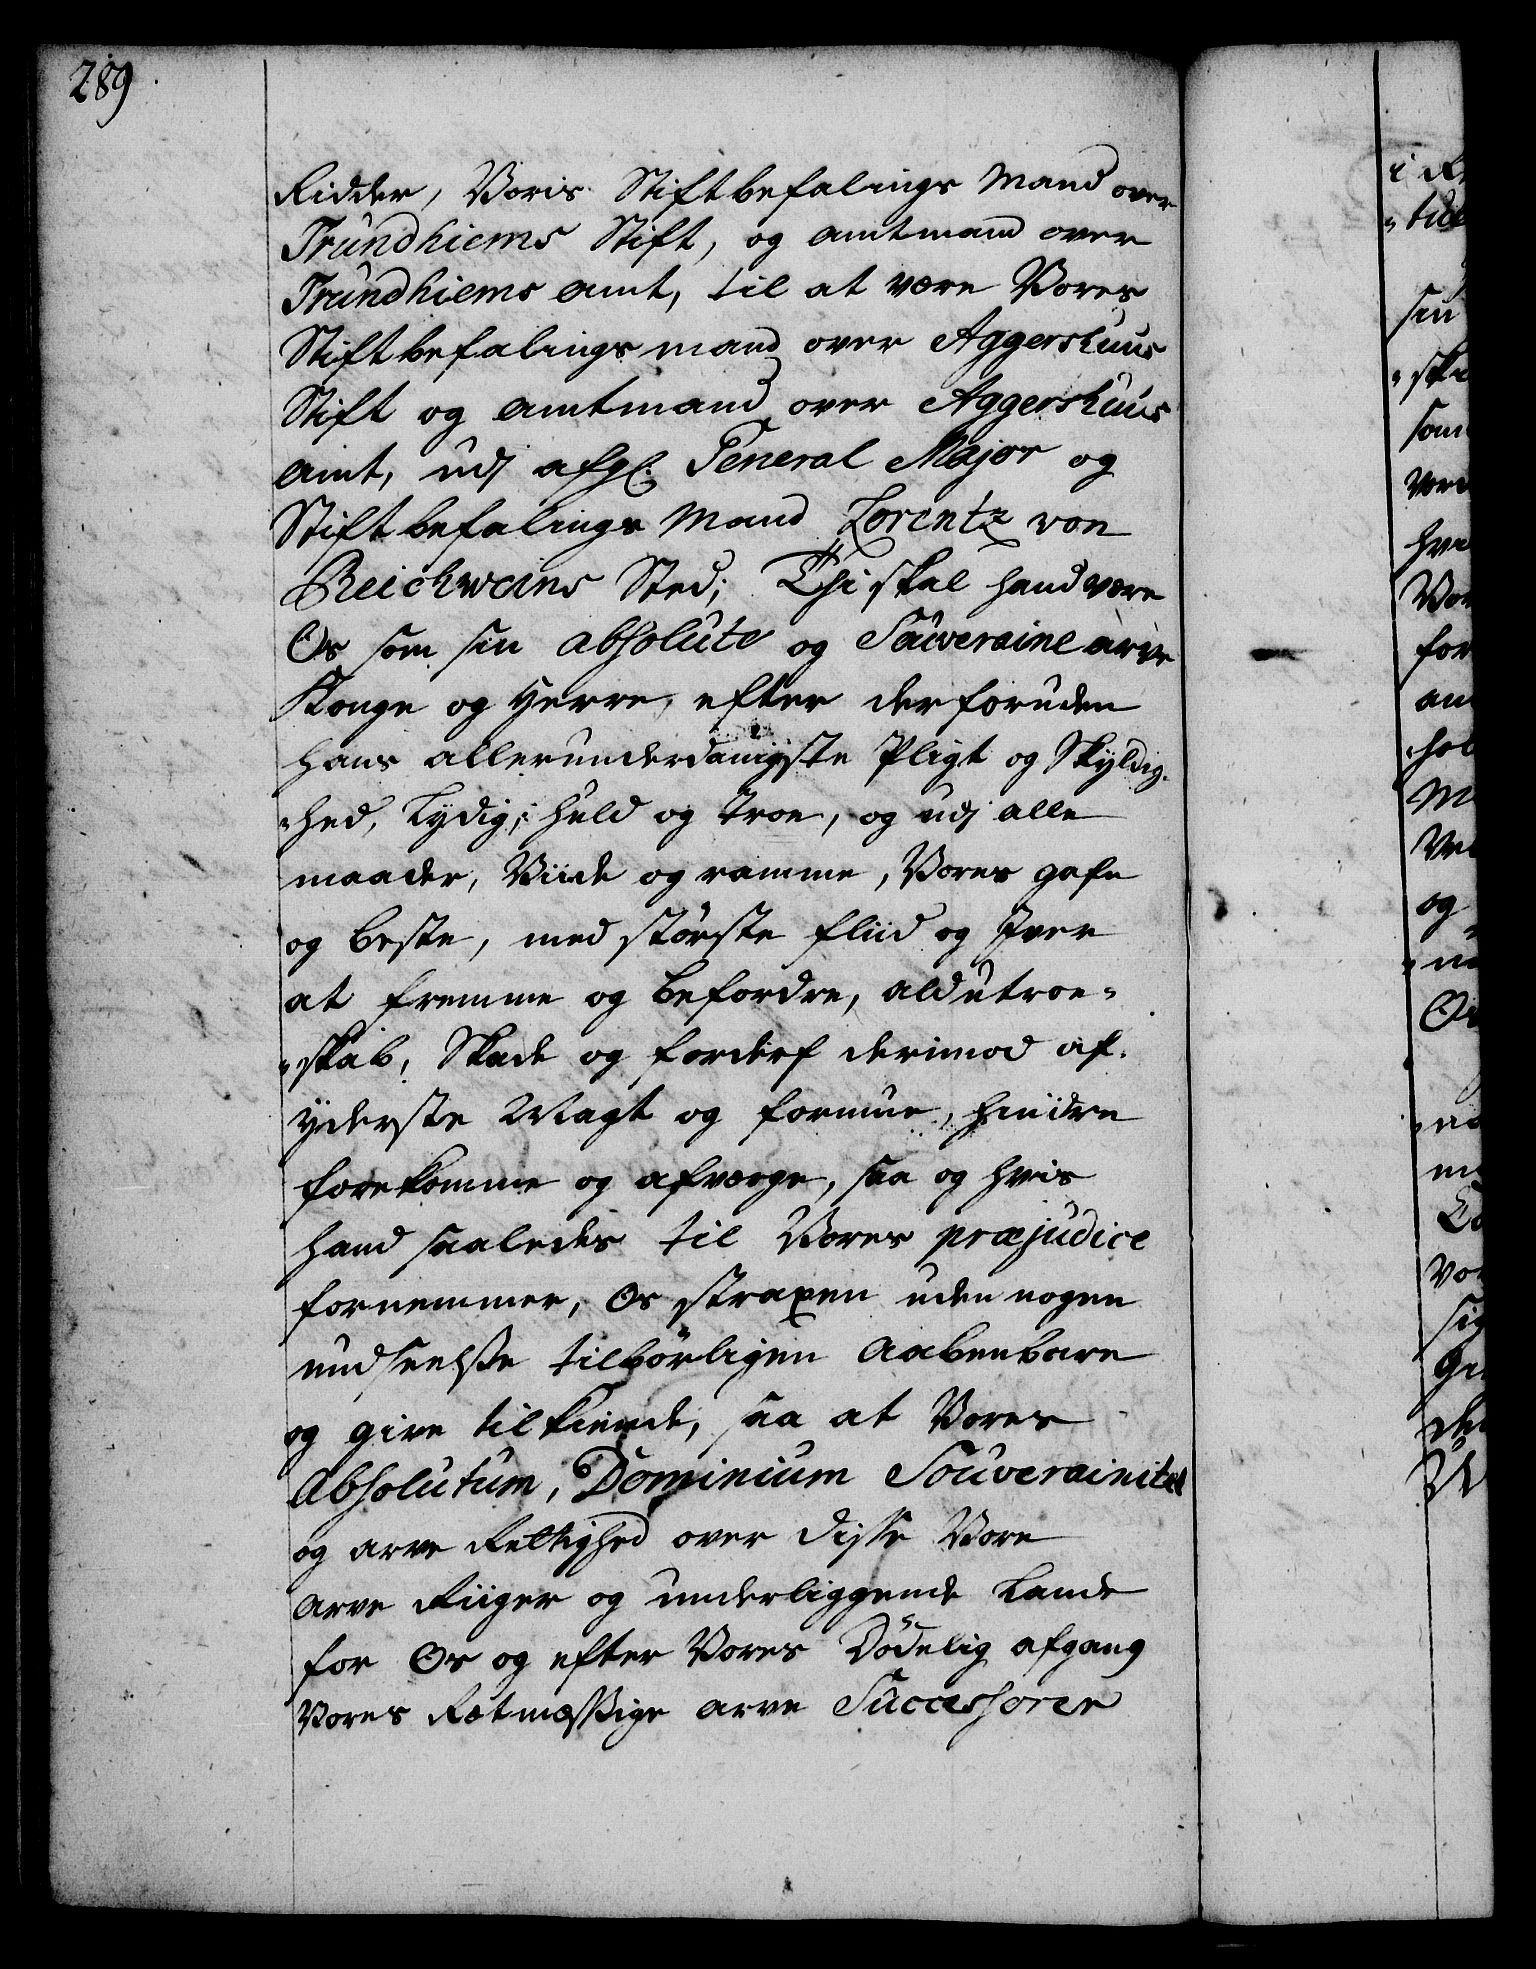 289
Ridder, Voris Stiftbefalings Mand over
Trundhiems Stift, og amtmand over
Trundhiems amt, til at være Vores
Stiftbefalings mand over Aggershuus
Stift og amtmand over Aggershuus
amt, udj afgl. General Major og
Stiftbefalings Mand Lorentz von
Reichweins Sted; Thi skal hand være
Os som sin absolute og Souveraine arve
Konge og Herre, efter derforuden
hans allerunderdanigste Pligt og Skyldig-
-hed, Lydig, huld og troe, og udj alle
maader, Viide og ramme, Vores gafn
og beste, med største fliid og Iver
at fremme og befordre, ald utroe-
-skab, Skade og forderf derimod af
yderste Magt og formue, hindre
forekomme og afværge, saa og hvis
hand saaledes til Vores præjudice
fornemmer, Os straxen uden nogen
undseelse tilbørligen Aabenbare
og give tilkiende, saa at Vores
Absolutum, Dominium Souverainitet
og arve Rettighed over disse Vore
arve Riiger og underliggende Lande
for Os og efter Vores Dødelig afgang
Vores Rætmæssige arve Successorer
i
-tid
sin
-ska
som
Vor
hva
Vor
for
an
hol
og
sig